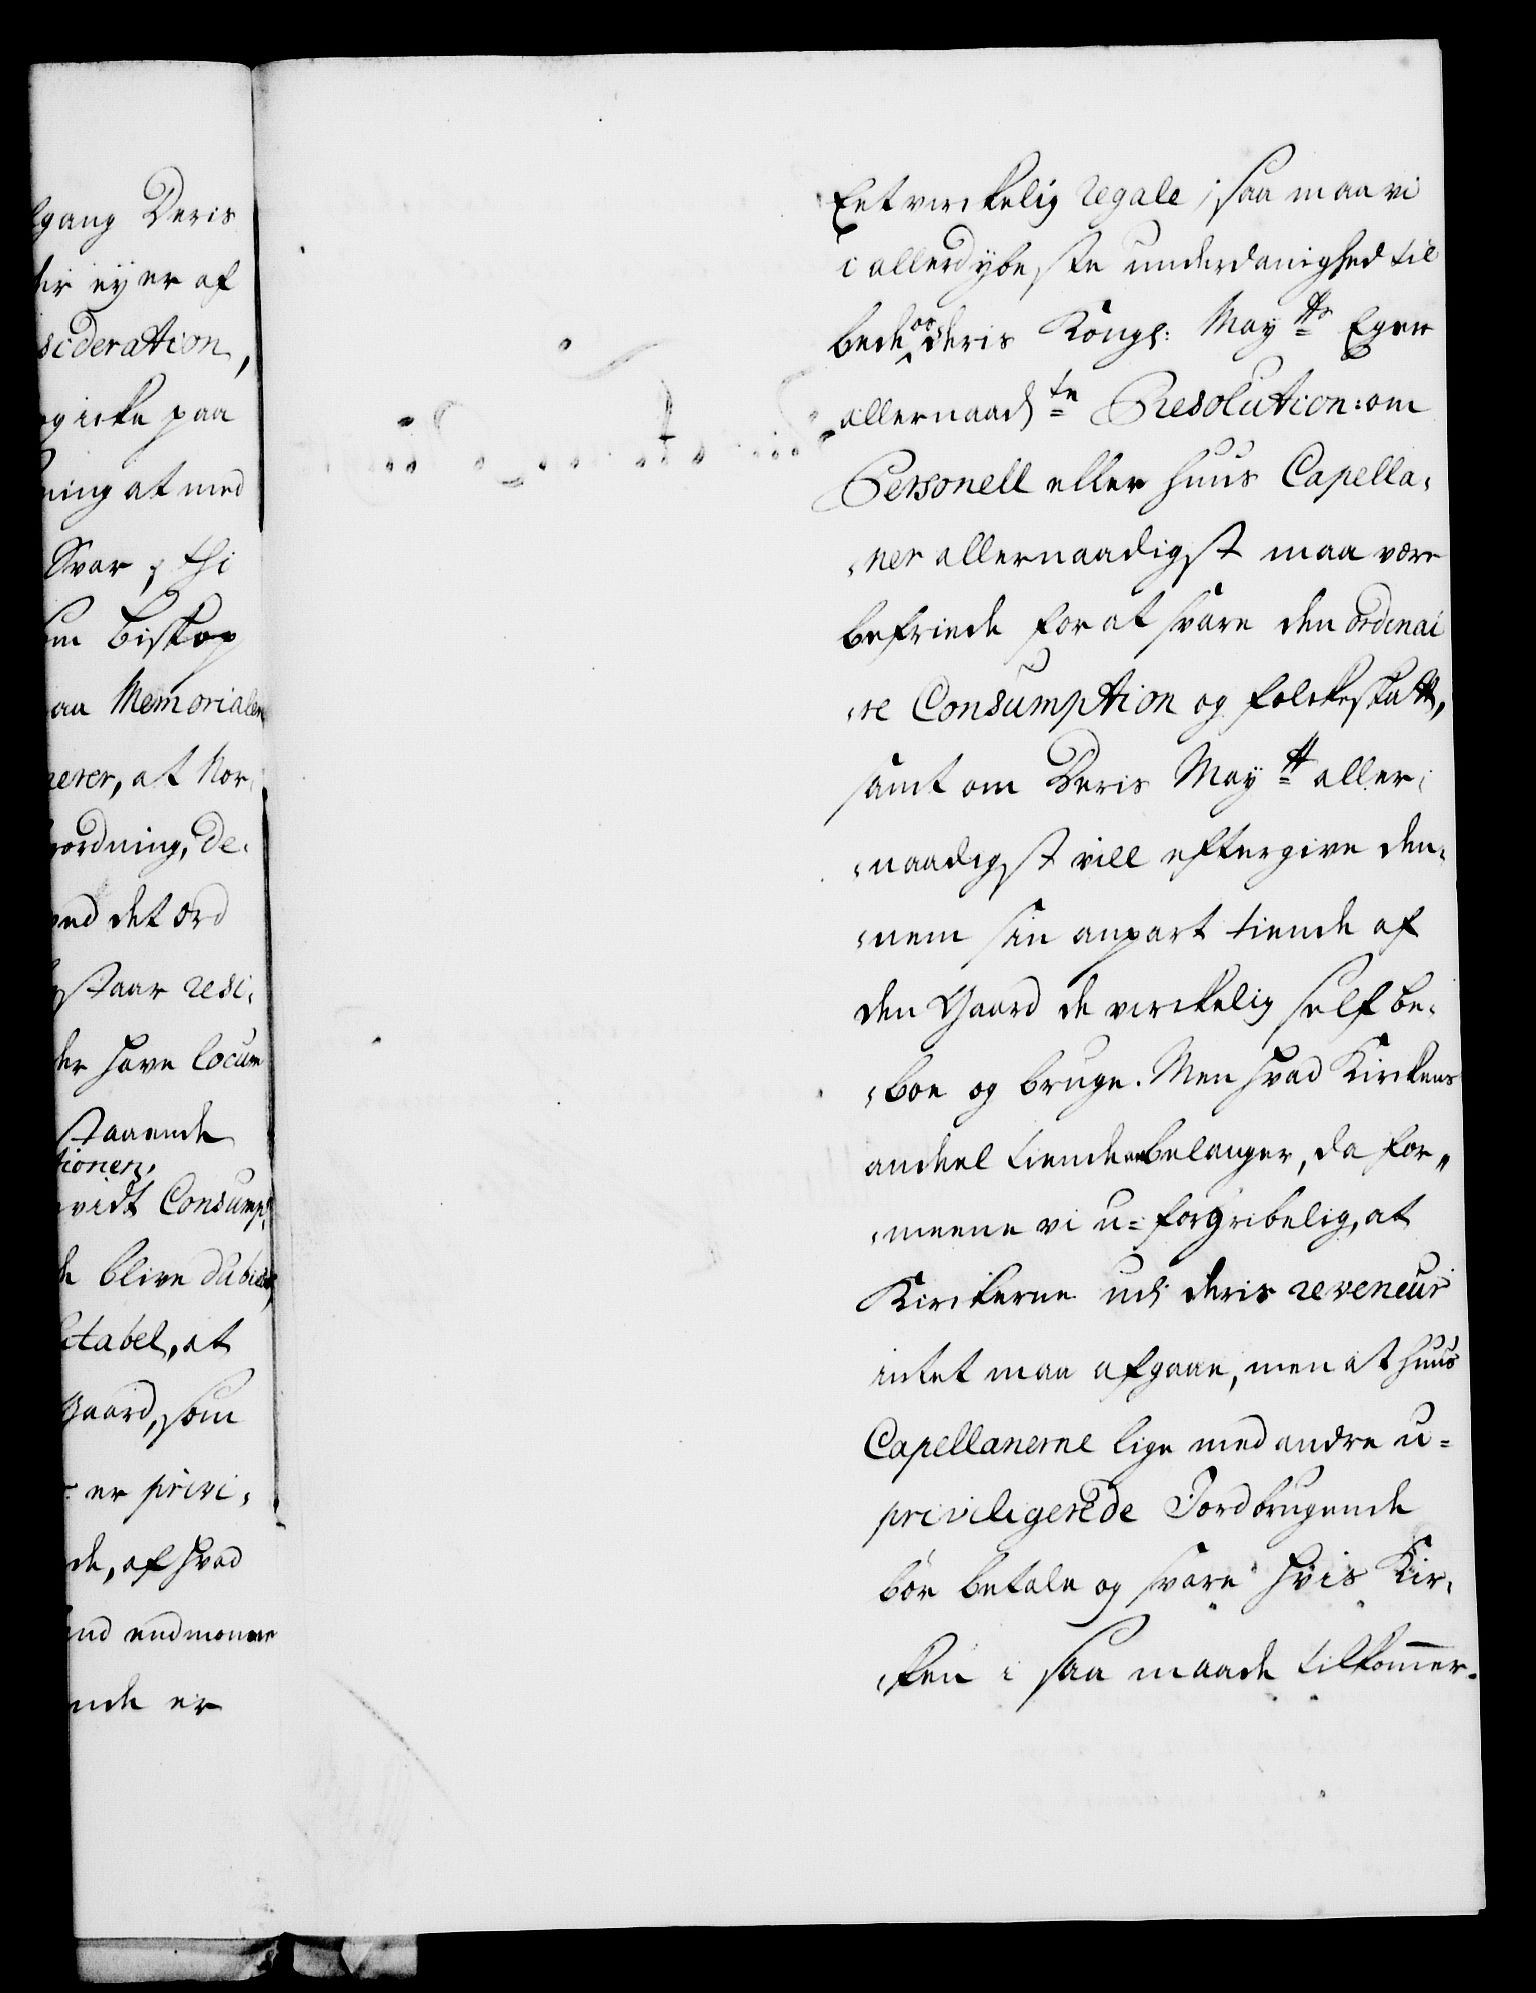 lgang Deris
er ey er af
sideration,
og icke paa
ning at med
Svar, thi
om Biskop
aa Memorialen
nerer, at Nor¬
ordning, De¬
ved det ord
staar resi¬
der have locum
staaende
tionen,
vidt Consump¬
de blive dubieus,
ctabel, at
Gaard, som
er privi¬
de, af hvad
nde er
Eet virckelig regale; saa maa vi
i allerdybeste underdanighed til
bede os deris Kongl: Maytts Egen
allernaadste Resolution: om
Personell eller Huus Capella¬
ner allernaadigst maa være
befriede for at svare den ordinai
re Consumption og folckeskatt,
samt om Deris Maytt aller¬
naadigst vill eftergive den¬
nem sin anpart tiende af
den Gaard de virckelig self be¬
boe og bruge. Men hvad Kirckens
andeel tiende belanger, da for¬
meene vi u-forgribelig, at
Kirckerne udi deris reveneur
intet maa afgaae, men at huus
Capellanerne lige med andre u-
priviligerede Jordbrugende
bør betale og svare hvis Kir¬
ken i saa maade tilkommer.